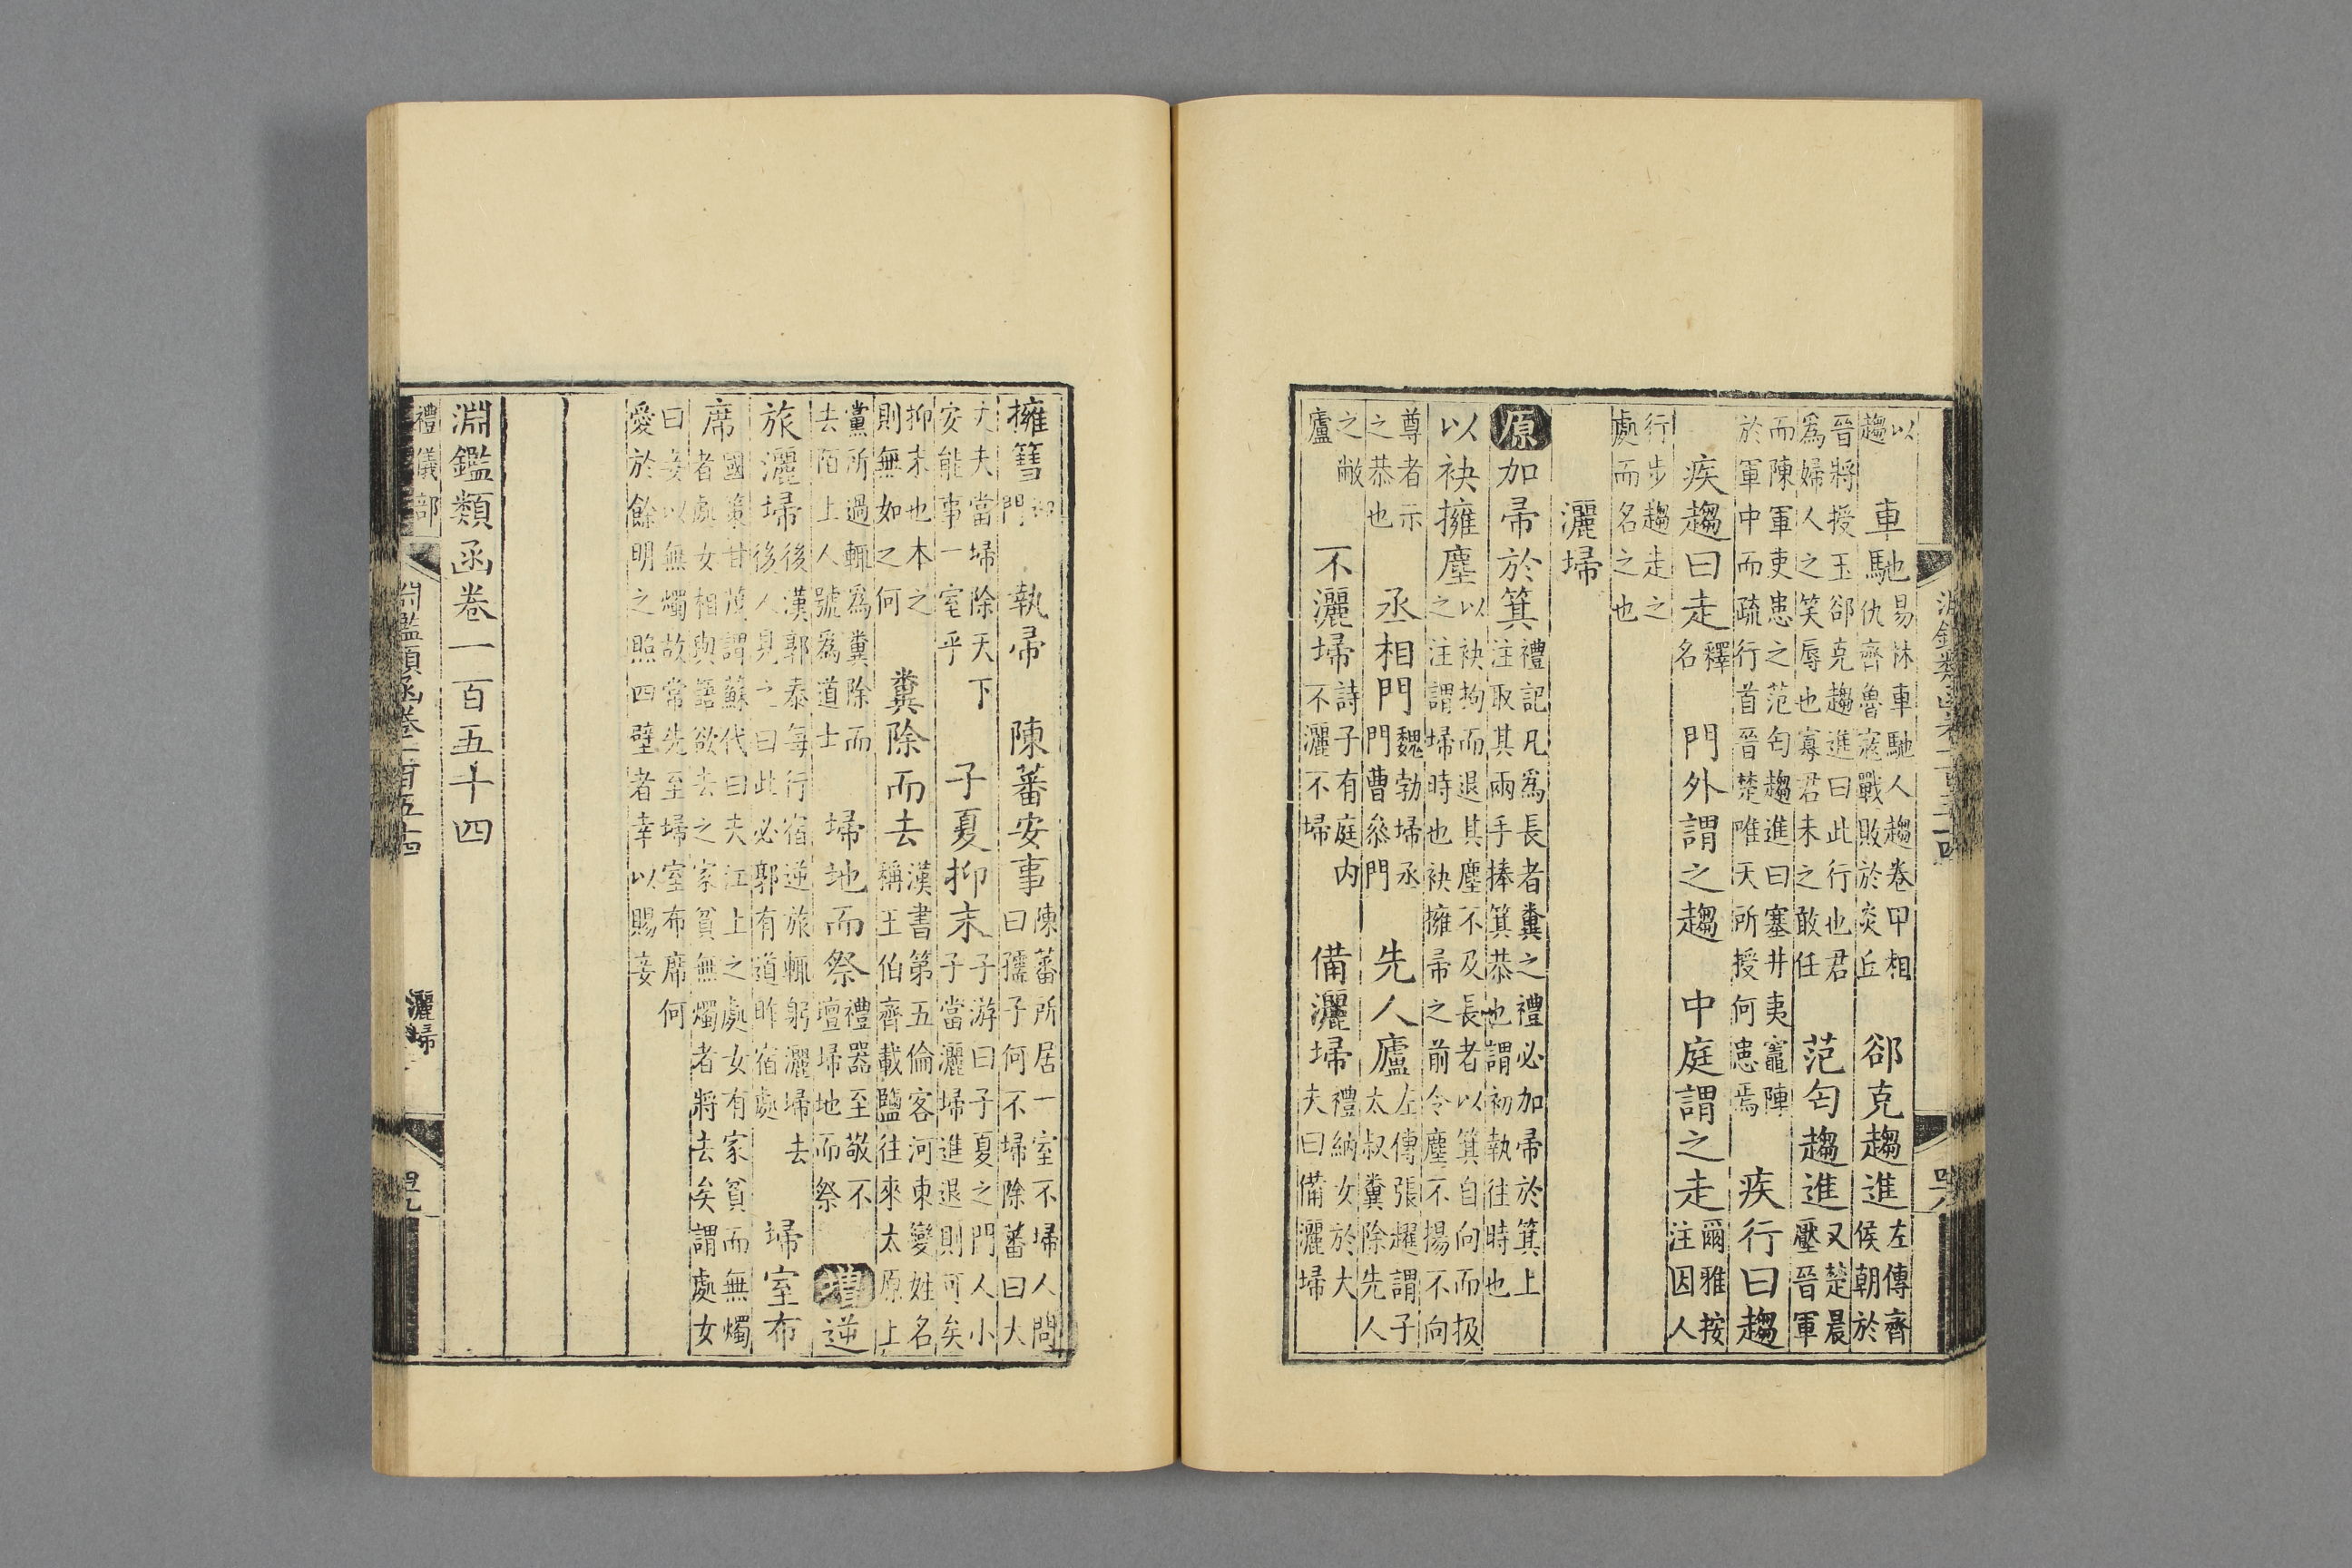 以趨車馳易牀車馳人趨卷甲相仇齊魯寇戰敗於炎丘郤克趨進左傳齊侯朝於
晉將授玉郤克趨進曰此行也君為婦人之笑辱也寡君未之敢任范匄趨進又楚晨壓晉軍
而陳軍吏患之范匄趨進曰塞井夷竈陳於軍中而疏行首晉楚唯天所授何患焉疾行曰趨
疾趨曰走釋名門外謂之趨中庭謂之走爾雅按注因人
行步趨走之處而名之也
灑埽
原加帚於箕禮記凡為長者糞之禮必加帚於箕上注取其兩手捧箕恭也謂初執往時也
以袂擁塵以袂拘而退其塵不及長者以箕自向而扱之注謂埽時也袂擁帚之前令塵不揚不向
尊者示之恭也丞相門魏勃埽丞門曹叅門先人廬左傳張趯謂子太叔糞除先人
之敝廬不灑埽詩子有庭内不灑不埽備灑埽禮納女於大夫曰備灑埽
擁篲門執帚陳蕃安事陳蕃所居一室不埽人問曰孺子何不埽除蕃曰大
丈夫當埽除天下安能事一室乎子夏抑末子游曰子夏之門人小子當灑埽進退則可矣
抑末也本之則無如之何糞除而去漢書第五倫客河東變姓名稱王伯齊載鹽往來太原上
黨所過輒為糞除而去陌上人號為道士埽地而祭禮器至敬不壇埽地而祭增逆
旅灑埽後漢郭泰每行宿逆旅輒躬灑埽去後人見之曰此必郭有道昨宿處埽室布
席國策甘茂謂蘇代曰夫江上之處女有家貧而無燭者處女相與語欲去之家貧無燭者將去矣謂處女
曰妾以無燭故常先至埽室布席何愛於餘明之照四壁者幸以賜妾
淵鑑類函卷一百五十四
禮儀部 淵鑑類函卷一百五十四 灑埽